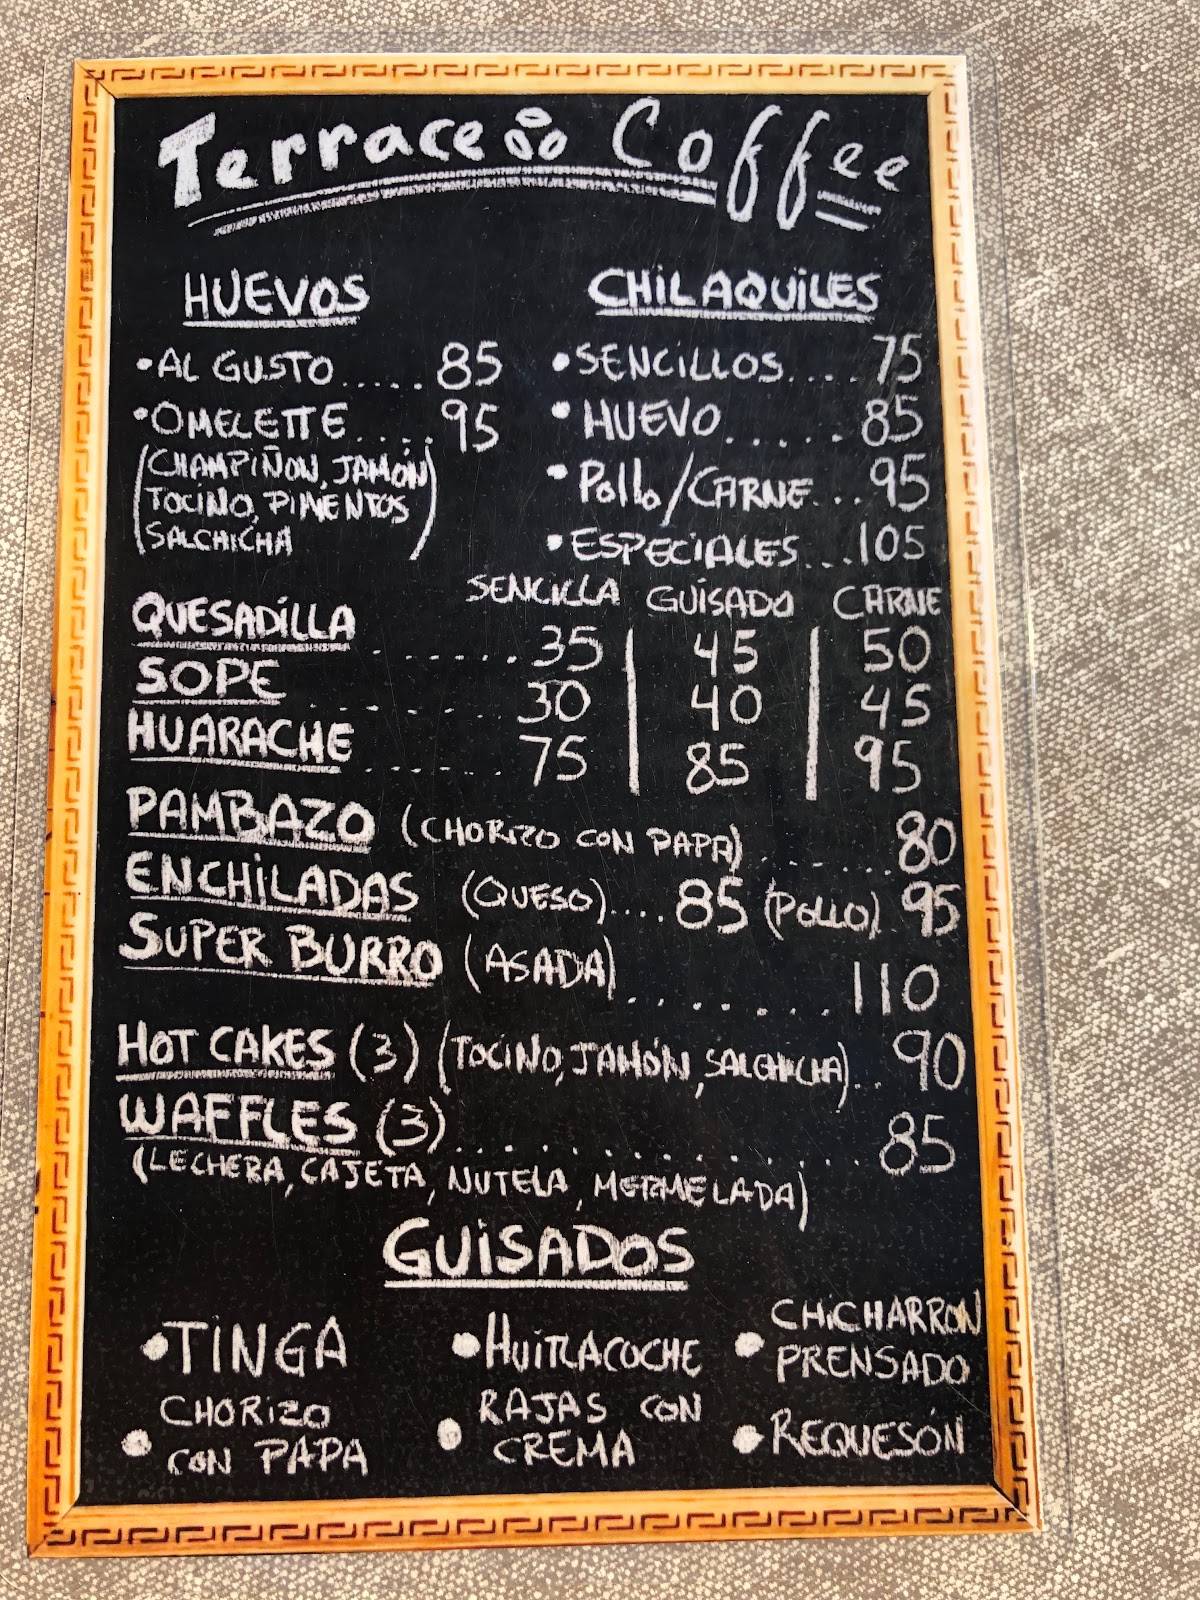 Terrace Coffee
HUEVOS
• AL GUSTO..... 85
• OMELETTE.... 95
(CHAMPIÑON, JAMÓN
TOCINO, PIMENTOS
SALCHICHA)
CHILAQUILES
• SENCILLOS.... 75
• HUEVO...... 85
• Pollo/CARNE... 95
• ESPECIALES... 105
SENCILLA GUISADO CARNE
QUESADILLA ....... 35 | 45 | 50
SOPE ....... 30 | 40 | 45
HUARACHE ...... 75 | 85 | 95
PAMBAZO (CHORIZO CON PAPA) ...... 80
ENCHILADAS (QUESO).... 85 (POLLO). 95
SUPER BURRO (ASADA) ....... 110
HOT CAKES (3) (TOCINO, JAMÓN, SALCHICHA).. 90
WAFFLES (3) .............. 85
(LECHERA, CAJETA, NUTELA, MERMELADA)
GUISADOS
• TINGA
• HUITLACOCHE
• CHICHARRON
PRENSADO
• CHORIZO
CON PAPA
• RAJAS CON
CREMA
• REQUESÓN